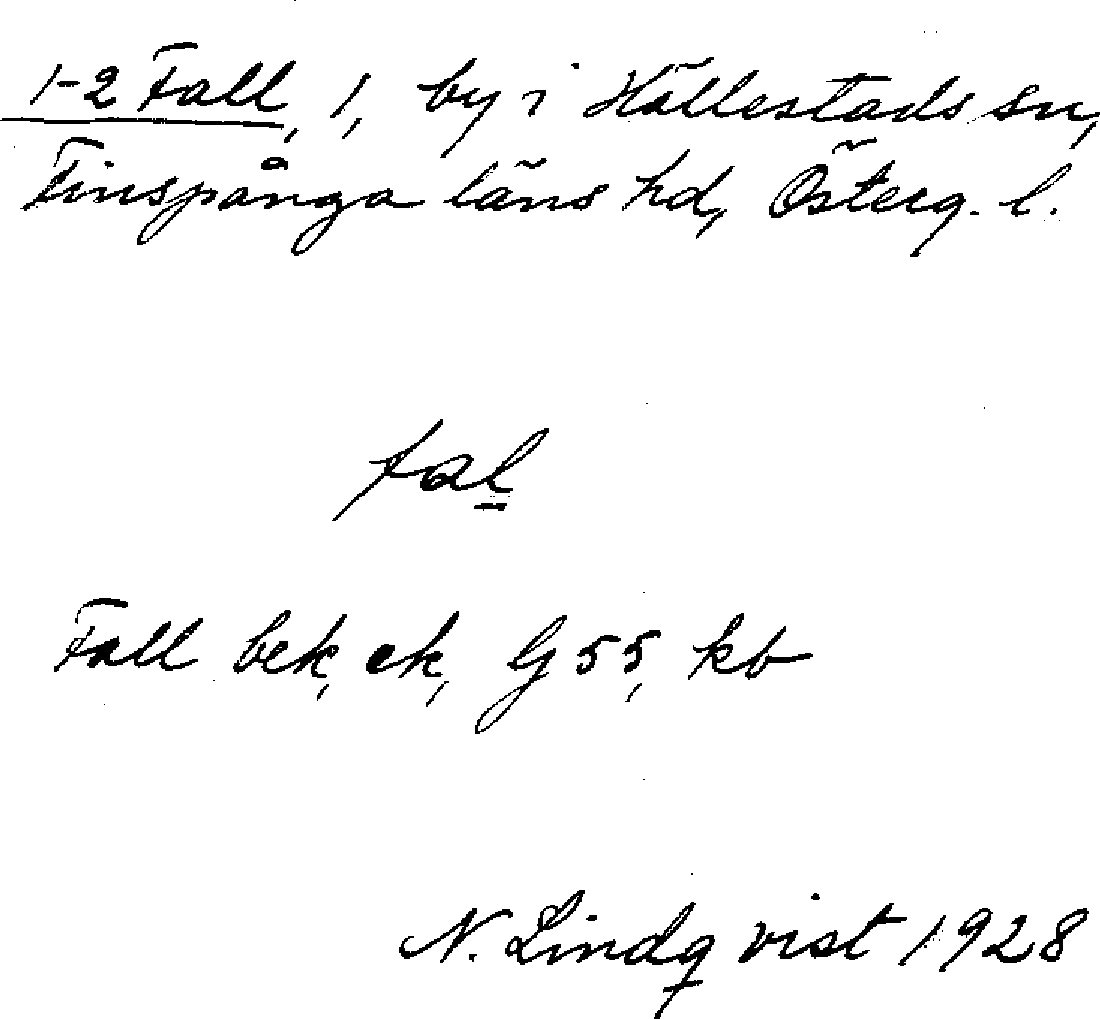 1-2 Fall, 1, by i Hällestads sn,
Finspånga läns hd, Österg. l.
fal
Fall bek, ek, G 55, kb
N. Lindqvist 1928